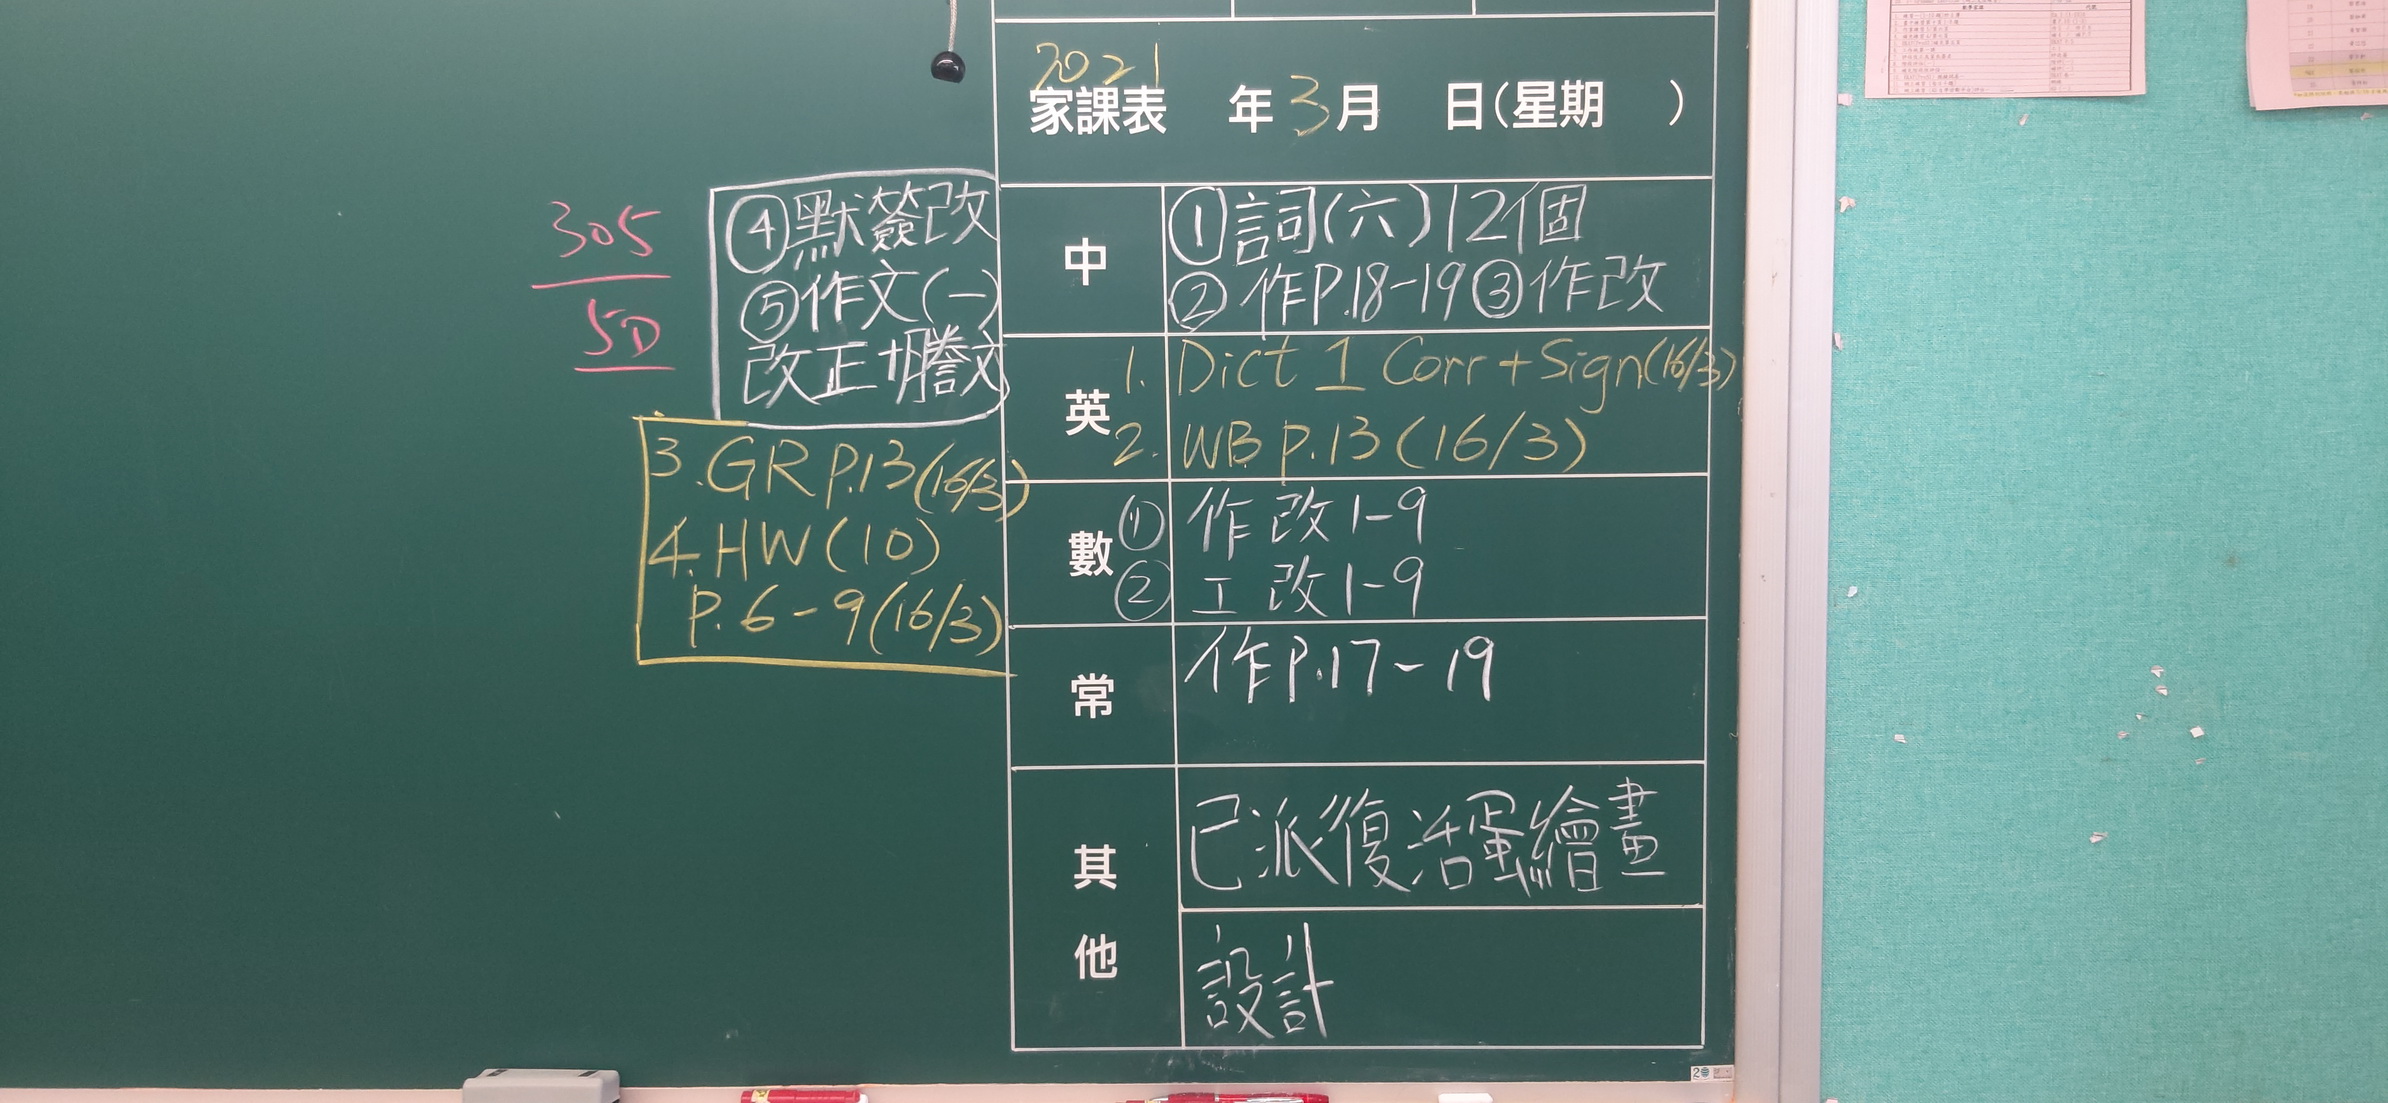 2021
家課表 年3月 日(星期 )
中
①詞(六)12個
②作P.18-19③作改
④默簽改
⑤作文(一)
改正+謄文
英
1. Dict 1 Corr+Sign(16/3)
2. WB p.13(16/3)
3.GR p.13(16/3)
4.HW(10)
p.6-9(16/3)
數
① 作改1-9
② 工改1-9
常
作P.17-19
其他
已派復活蛋繪畫
設計
305
5D